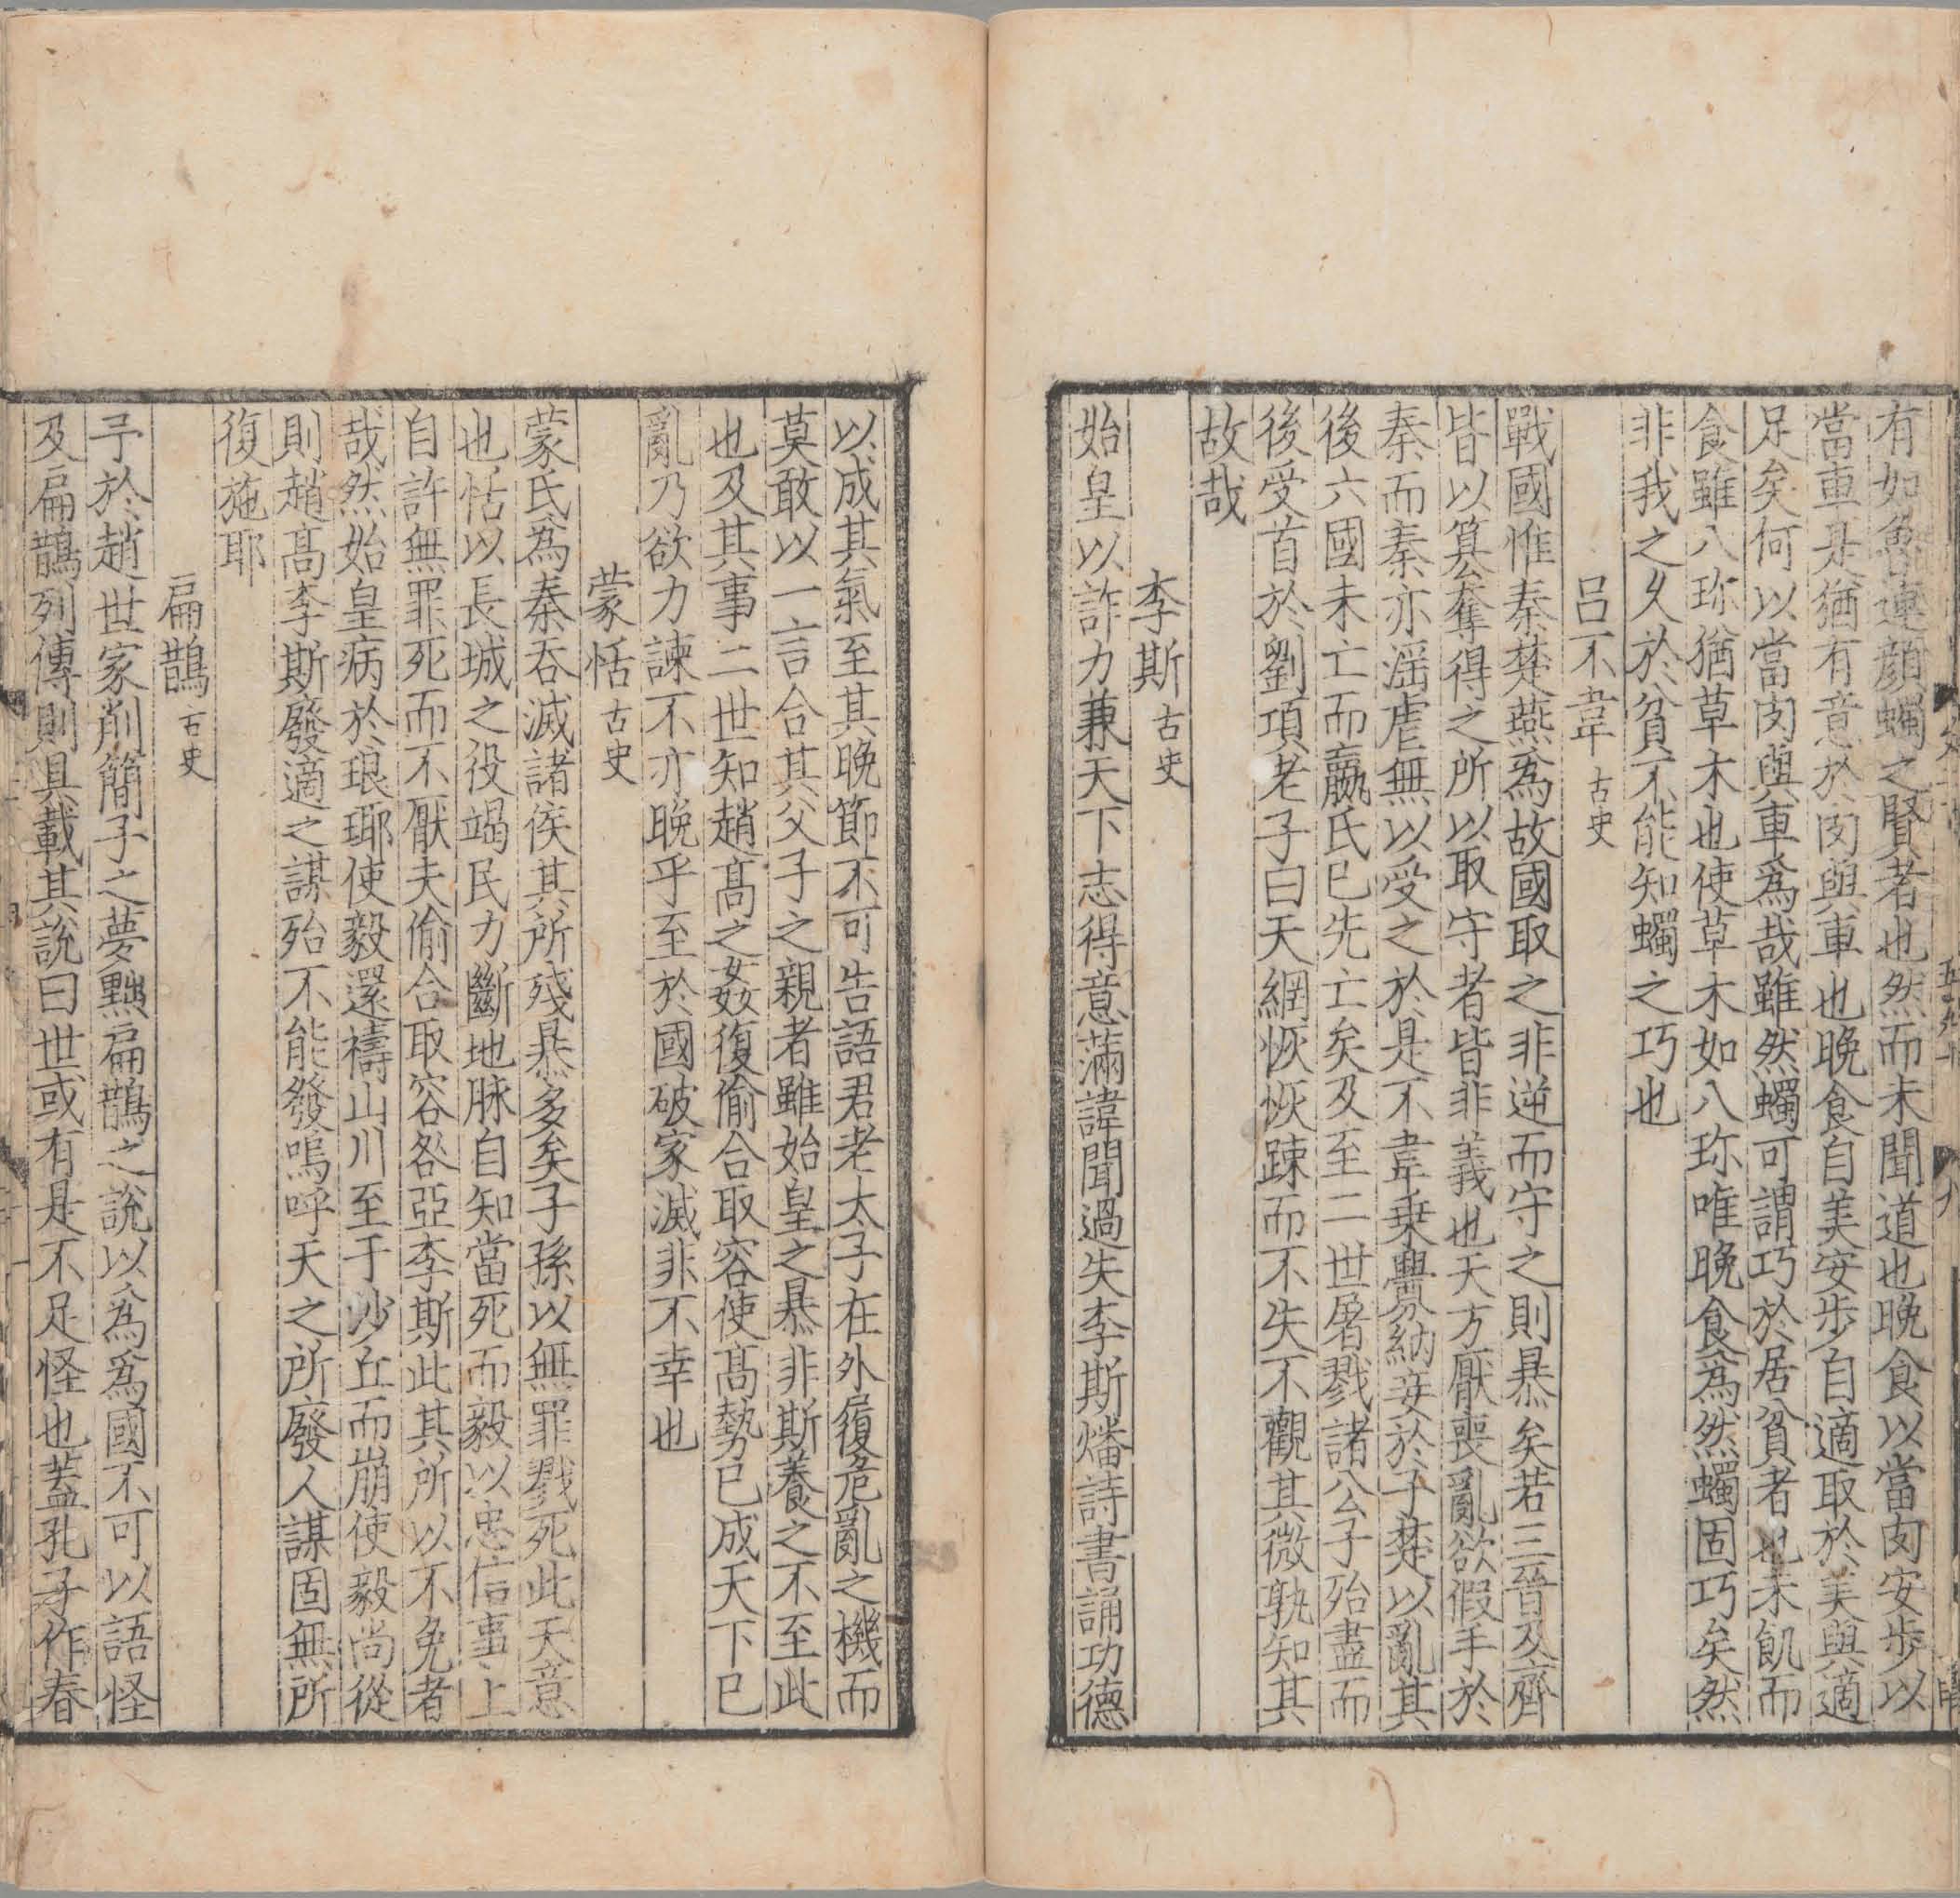 有如魯連顔蠋之賢者也然而未聞道也晚食以當肉安步以
當車是猶有意於肉與車也晚食自美安步自適取於美與適
足矣何以當肉與車爲哉雖然蠋可謂巧於居貧者也未飢而
食雖八珎猶草木也使草木如八珎唯晚食爲然蠋固巧矣然
非我之久於貧不能知蠋之巧也
呂不韋古史
戰國惟秦楚燕爲故國取之非逆而守之則暴矣若三晉及齊
皆以簒奪得之所以取守者皆非義也天方厭喪亂欲假手於
秦而秦亦滛虐無以受之於是不韋乗釁納妾於子楚以亂其
後六國未亡而嬴氏已先亡矣及至二世屠戮諸公子殆盡而
後受首於劉項老子曰天網恢恢踈而不失不觀其微孰知其
故哉
李斯古史
始皇以詐力兼天下志得意滿諱聞過失李斯燔詩書誦功德
以成其氣至其晚節不可告語君老太子在外履危亂之機而
莫敢以一言合其父子之親者雖始皇之暴非斯養之不至此
也及其事二世知趙髙之姦復偷合取容使髙勢已成天下已
亂乃欲力諫不亦晚乎至於國破家滅非不幸也
蒙恬古史
蒙氏爲秦吞滅諸侯其所殘暴多矣子孫以無罪戮死此天意
也恬以長城之役竭民力斷地脉自知當死而毅以忠信事上
自許無罪死而不厭夫偷合取容咎亞李斯此其所以不免者
哉然始皇病於琅琊使毅還禱山川至于沙丘而崩使毅尚從
則趙髙李斯廢適之謀殆不能發嗚呼天之所廢人謀固無所
復施耶
扁鵲古史
予於趙世家削簡子之夢黜扁鵲之說以爲爲國不可以語怪
及扁鵲列傳則具載其說曰世或有是不足怪也蓋孔子作春